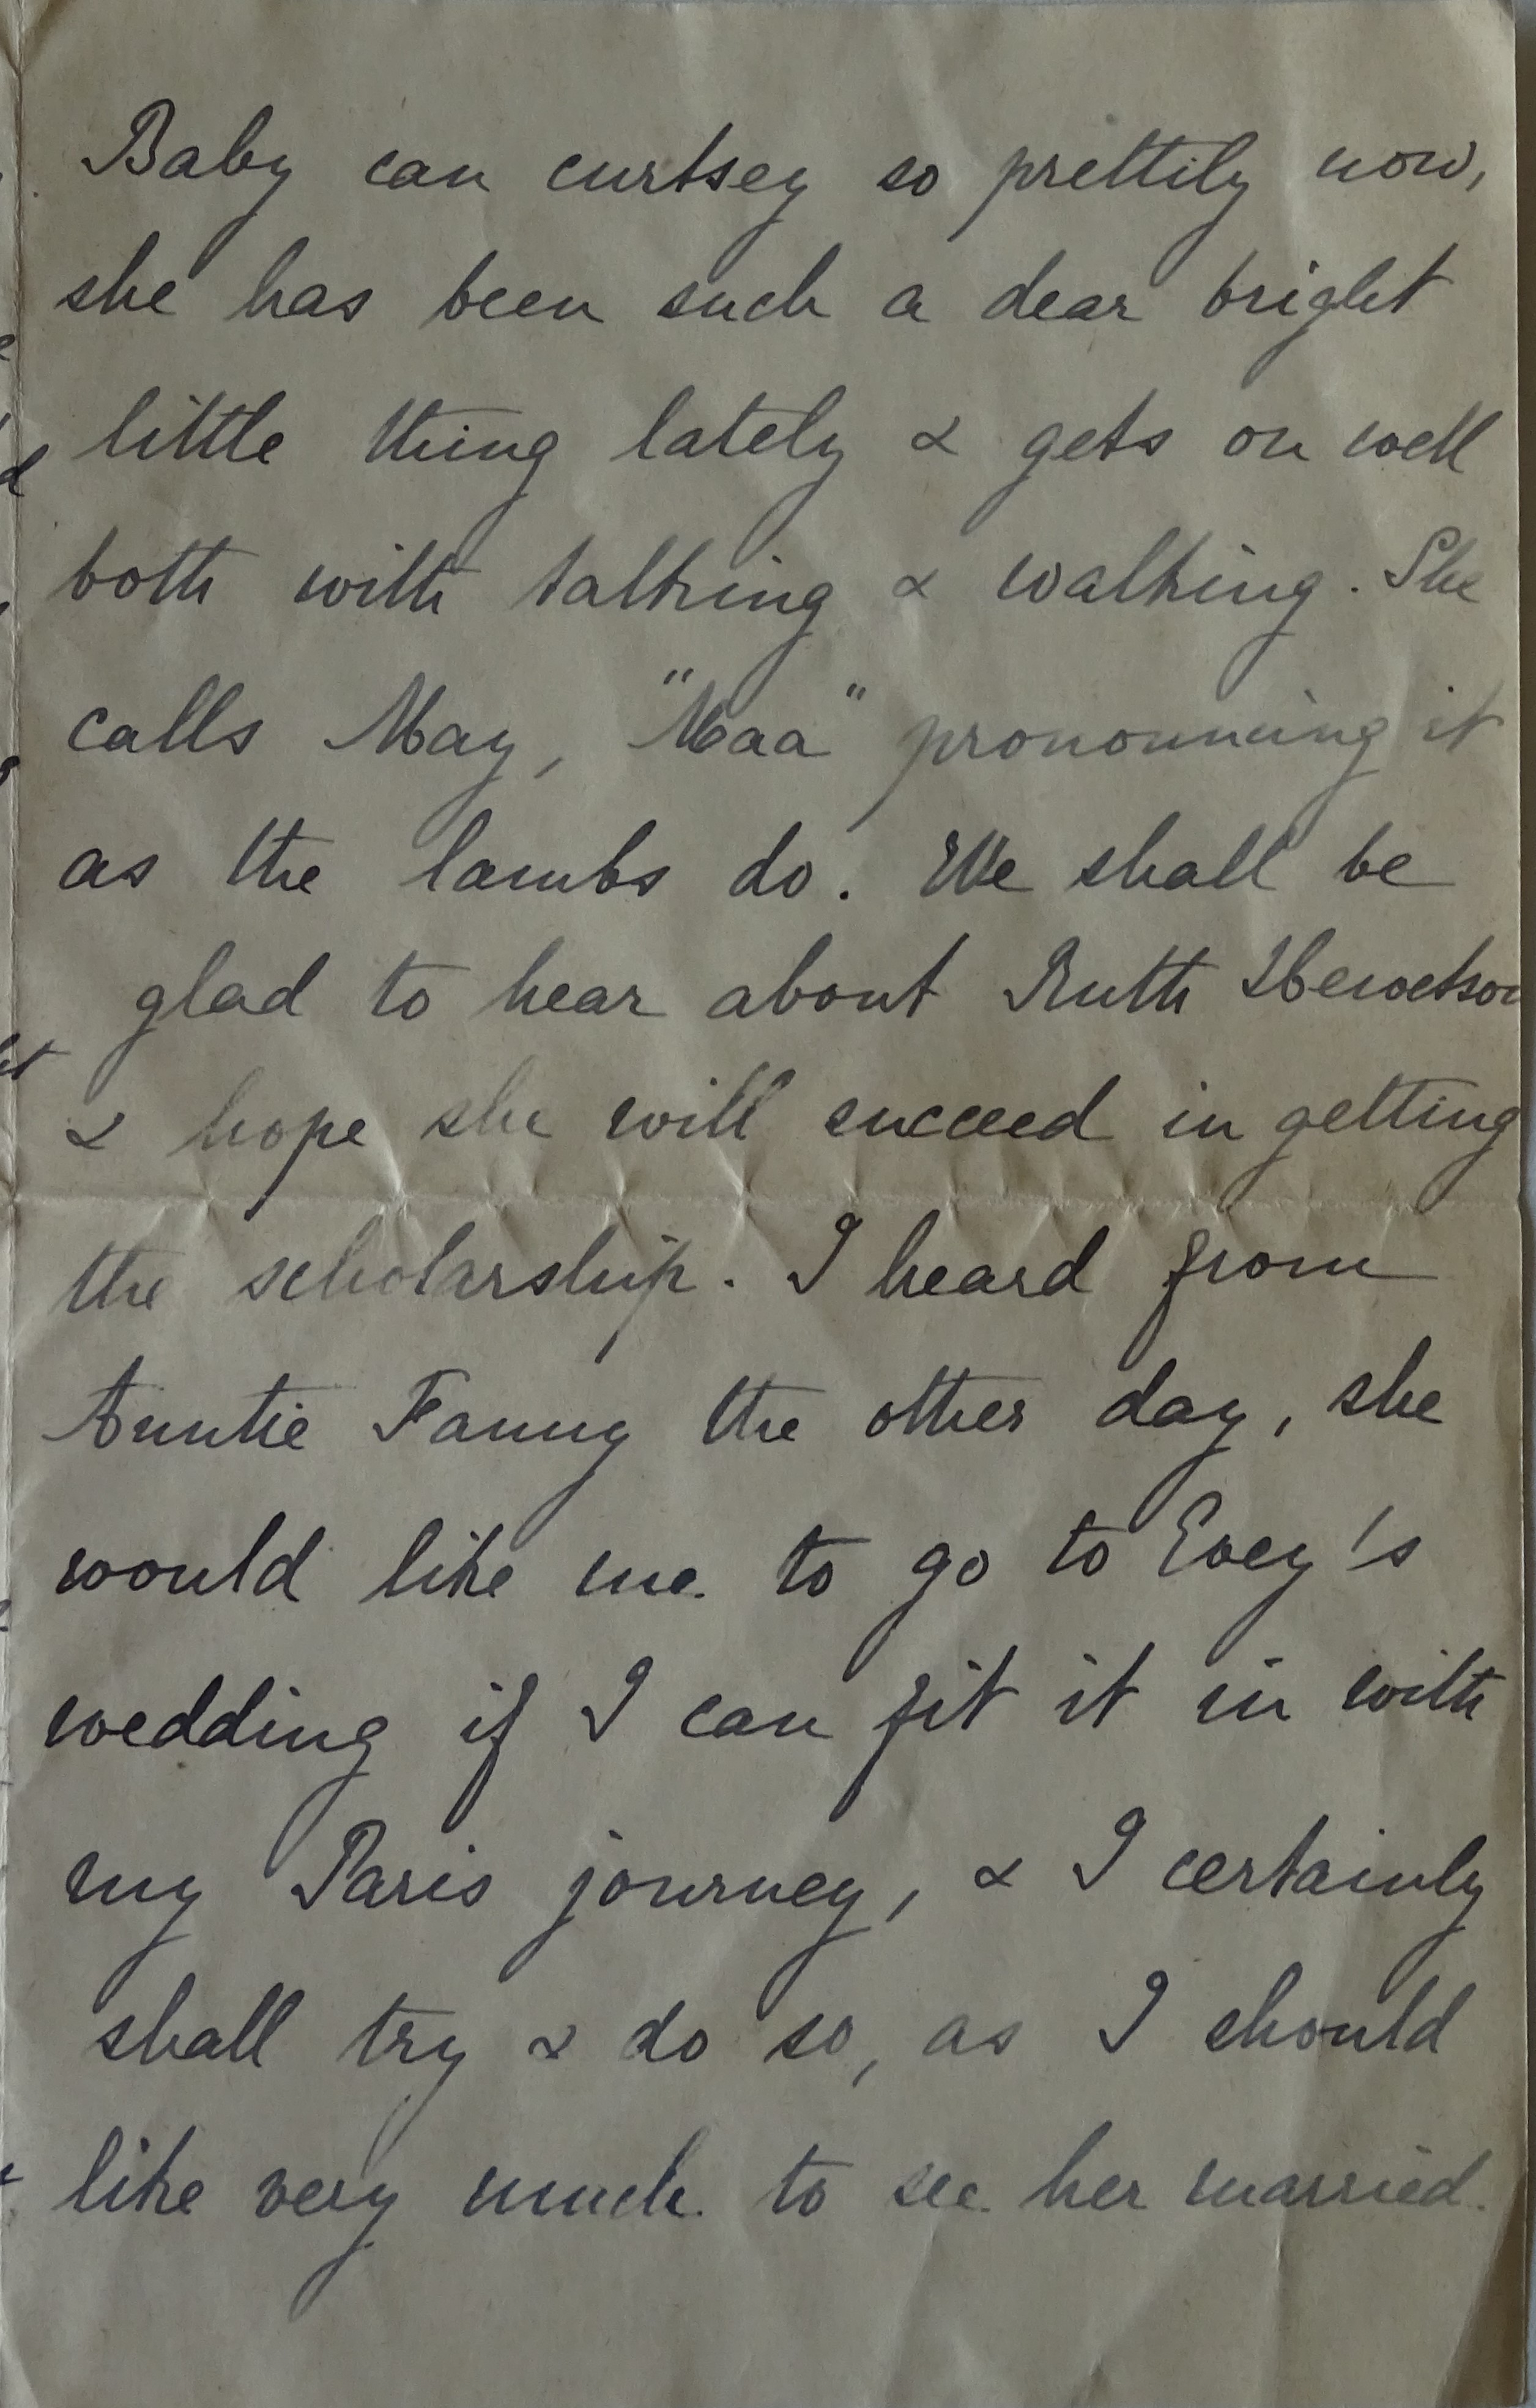 Baby can curtsey so prettily now,
she has been such a dear bright
little thing lately & gets on well
both with talking & walking. She
calls May, "Maa" pronouncing it
as the lambs do. We shall be
glad to hear about Ruth Hewetson
& hope she will succeed in getting
the scholarship. I heard from
Auntie Fanny the other day, she
would like me to go to Evey's
wedding if I can fit it in with
my Paris journey, & I certainly
shall try & do so, as I should
like very much to see her married.